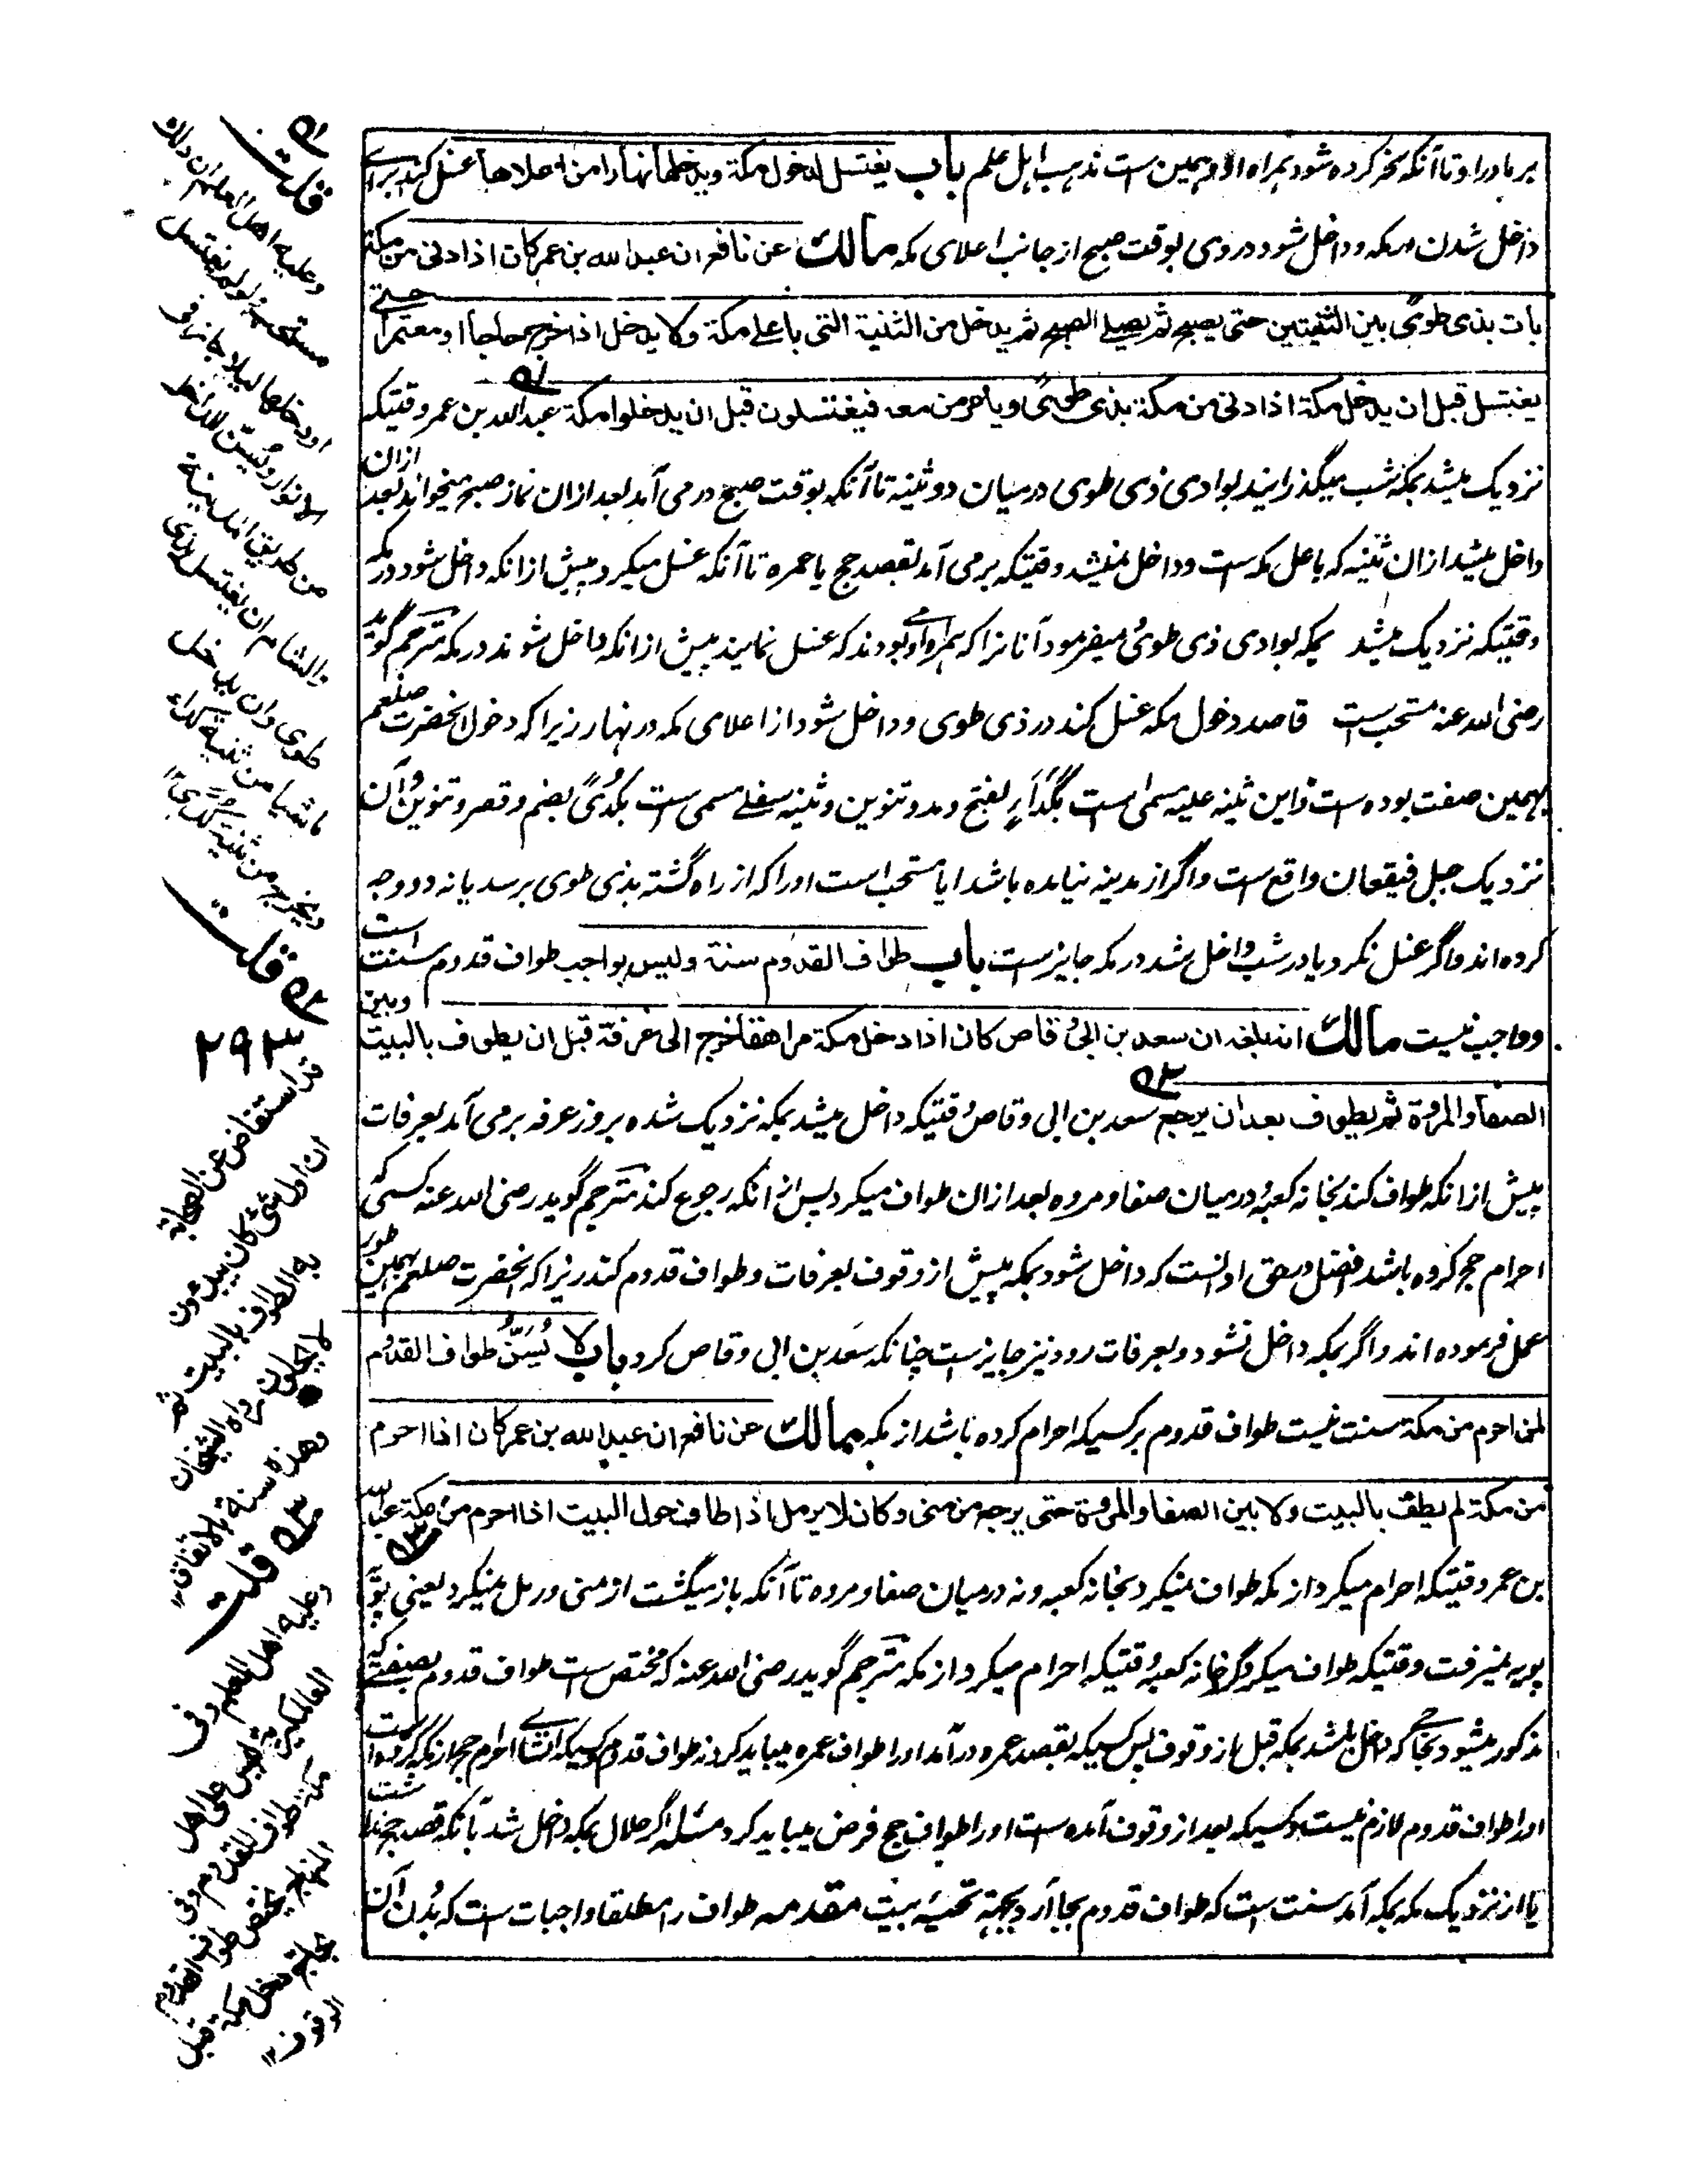 بر مادر او تا آنکه نحر کرده شود همراه او و همین ست مذهب اهل علم باب یغتسل لدخول مکة ویدخلها نهارا من اعلاها غسل کند برای
داخل شدن مکه و داخل شود در وی بوقت صبح از جانب اعلای مکه مالك عن نافع ان عبد الله بن عمر کان اذا دنی من مکة
بات بذی طوًی بین الثنیتین حتی یصبح ثم یصلی الصبح ثم یدخل من الثنیة التی باعلے مکة ولا یدخل اذا خرج حاجا او معتمرا حتے
یغتسل قبل ان یدخل مکة اذا دنی من مکة بذی طوًی ویامر من معه فیغتسلون قبل ان یدخلوا مکة عبد الله بن عمر وقتیکه
نزدیک میشد بمکه شب میگذرانید بوادی ذی طوی درمیان دو ثنیه تا آنکه بوقت صبح در می آمد بعد ازان نماز صبح میخواند بعد ازان
داخل میشد ازان ثنیه که باعلی مکه ست و داخل نمیشد وقتیکه برمی آمد بقصد حج یا عمره تا آنکه غسل میکرد پیش ازانکه داخل شود در مکه
وقتیکه نزدیک میشد بمکه بوادی ذی طویٰ میفرمود آنانرا که همراه او بودند که غسل نمایند پیش ازانکه داخل شوند در مکه مترجم گوید
رضی الله عنه مستحب ست قاصد دخول مکه غسل کند در ذی طوی و داخل شود از اعلای مکه در نهار زیرا که دخول آنحضرت صلعم
بهمین صفت بوده ست و این ثنیه علیه مسمی است بکَدَاَءٍ بفتح و مد و تنوین و ثنیه سفلے مسمی ست بکُدًی بضم و قصر و تنوین و آن
نزدیک جبل قیقعان واقع ست و اگر از مدینه نیامده باشد ایا مستحب است اورا که از راه گشته بذی طوی برسد یا نه دو وجه
کرده اند و اگر غسل نکرد یا در شب داخل شد در مکه جایز ست باب طواف القدوم سنة ولیس بواجب طواف قدوم سنت است
و واجب نیست مالك انه بلغه ان سعد بن ابی وقاص کان اذا دخل مکة مراهقا خرج الی عرفة قبل ان یطوف بالبیت وبین
الصفا والمروة ثم یطوف بعد ان یرجع سعد بن ابی وقاص وقتیکه داخل میشد بمکه نزدیک شده بروز عرفه برمی آمد بعرفات
پیش ازانکه طواف کند بخانه کعبه و درمیان صفا و مروه بعد ازان طواف میکرد پس ازانکه رجوع کند مترجم گوید رضی الله عنه کسی که
احرام حج کرده باشد افضل در حق او انست که داخل شود بمکه پیش از وقوف بعرفات و طواف قدوم کند زیرا که آنحضرت صلعم بهمین طور
عمل فرموده اند و اگر بمکه داخل نشود و بعرفات رود نیز جایز ست چنانکه سعد بن ابی وقاص کرد باب لا یُسَنُّ طواف القدوم
لمن احرم من مکة سنت نیست طواف قدوم بر کسیکه احرام کرده باشد از مکه مالك عن نافع ان عبد الله بن عمر کان اذا احرم
من مکة لم یطف بالبیت ولا بین الصفا والمروة حتی یرجع من منی وکان لا یرمل اذا طاف حول البیت اذا احرم من مکة عبد الله
بن عمر وقتیکه احرام میکرد از مکه طواف نمیکرد بخانه کعبه و نه درمیان صفا و مروه تا آنکه باز میگشت از منی و رمل نمیکرد یعنی پویه
پویه نمیرفت وقتیکه طواف میکرد گرد خانه کعبه وقتیکه احرام میکرد از مکه مترجم گوید رضی الله عنه که مختص ست طواف قدوم بصیغتی که
مذکور میشود بحاجی که داخل شد بمکه قبل از وقوف پس کسیکه بقصد عمره در آمد اورا طواف عمره میباید کرد نه طواف قدوم و کسیکه انشاے احرام حج از مکه کرده است
اورا طواف قدوم لازم نیست و کسیکه بعد از وقوف آمده ست اورا طواف حج فرض میباید کرد مسئله اگر حلال بمکه داخل شد با آنکه قصد حج نداشت
یا از نزدیک مکه بمکه آمد سنت ست که طواف قدوم بجا آرد بجهة تحیه بیت مقدمه طواف را مطلقا واجبات ست که بدُن آن
۵۱ قلت
وعلیه اهل العلم ان ذلك
مستحب ولو لم یغتسل
او دخلها لیلا جاز فی
الانوار ویُسنّ للداخل
من طریق المدینة
والشام ان یغتسل بذی
طوی وان یدخل
ماشیا من ثنیة کداء
ویخرج من ثنیة کُدیً
۵۲ قلت
۲۹۳
قد استفاض عن الصحابة
ان اول شئ کان یبدؤن
به الطواف بالبیت ثم
لا یحلون رواه الشیخان
وهذه سنة بالاتفاق
۵۳ قلت
وعلیه اهل العلم وفی
العالمگیریة لیس علی اهل
مکة طواف القدوم وفی
المنهاج یختص طواف القدوم
بحاج دخل مکة قبل
الوقوف